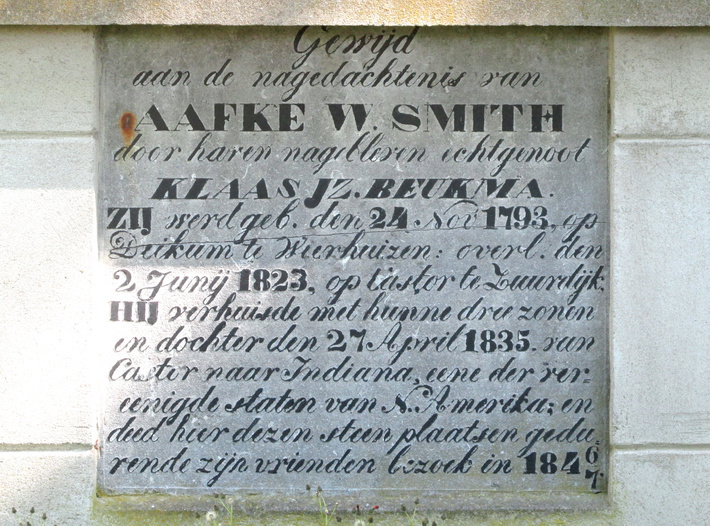 Gewijd
aan de nagedachtenis van
AAFKE W. SMITH
door haren nagebleren echtgenoot
KLAAS JZ. BEUKMA.
ZIJ werd geb. den 24 Nov 1793, op
Deikum te Wierhuizen: overl. den
2 Junij 1823, op Castor te Zuurdijk;
HIJ verhuisde met hunne drie zonen
en dochter den 27 April 1835. van
Castor naar Indiana, eene der ver=
eenigde staten van N. Amerika; en
deed hier dezen steen plaatsen gedu
rende zijn vrienden bezoek in 184 6/7.